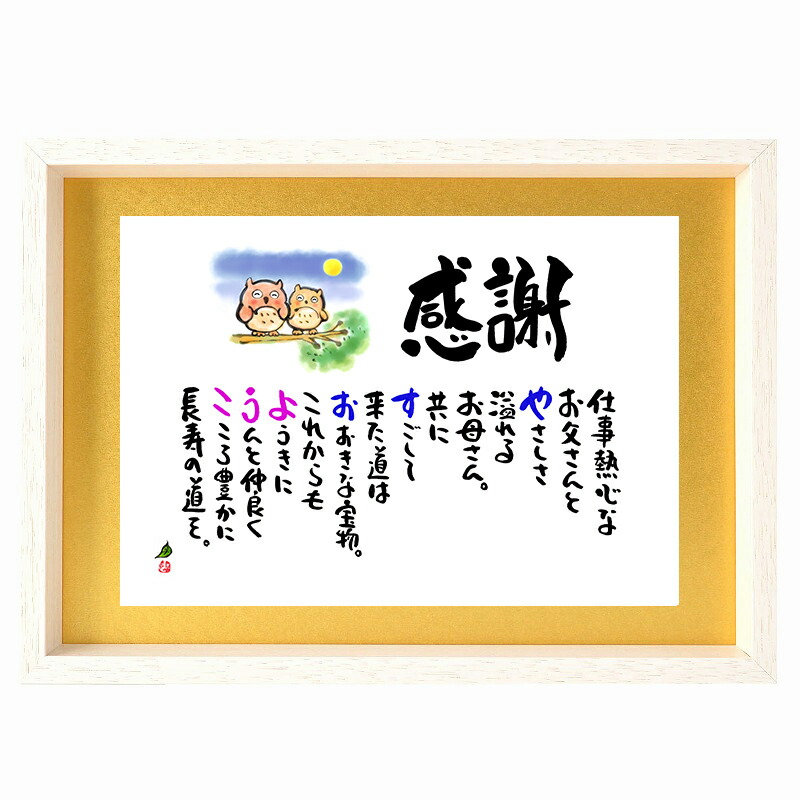 感謝
仕事熱心な
お父さんと
やさしさ
溢れる
お母さん。
共に
すごして
来た道は
おおきな宝物。
これからも
ようきに
うんと仲良く
こころ豊かに
長寿の道を。